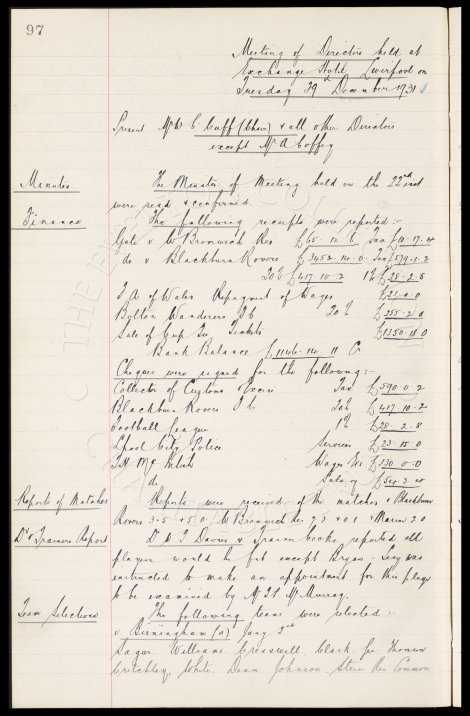 97
Meeting of Directors held at
Exchange Hotel Liverpool on
Tuesday 29 December 1931
Present Mr W C Cuff (Chair) & all other Directors
except Mr A Coffey
Minutes The Minutes of Meeting held on the 22nd inst
were read & confirmed.
Finance The following receipts were reported :-
Gate v W Bromwich Res £65-12-6 Tax £10-17-4
do v Blackburn Rovers £3452-14-0 Tax £579-1-2
20% £417-10-2 1% £28-2-8
F A of Wales Repayment of Wages £23-0-0
Bolton Wanderers F C 20% £255-2-0
Sale of Cup Tie Tickets £1350-18-0
Bank Balance £1146-14-11 Cr
Cheques were signed for the following :-
Collector of Customs Excise Tax £590-0-2
Blackburn Rovers F C 20% £417-10-2
Football League 1% £28-2-8
Lpool City Police Services £23-15-0
T H McIntosh Wages &c £330-0-0
do Salary
Reports of Matches Reports were received of the matches v Blackburn
Rovers 3-5 & 5-0 W Bromwich Res 7-2 & 0-1 & Marine 2-0
Dr & Trainers Report Dr Davies & Trainer Cooke reported all
players would be fit except Bryan. Secy was
instructed to make an appointment for this player
to be examined by Mr McMurray.
Team Selections The following teams were selected :-
v Birmingham (a) Jany 2nd
Sagar. Williams. Cresswell. Clark. Gee. Thomson
Critchley. White. Dean. Johnson. Stein. Res Common